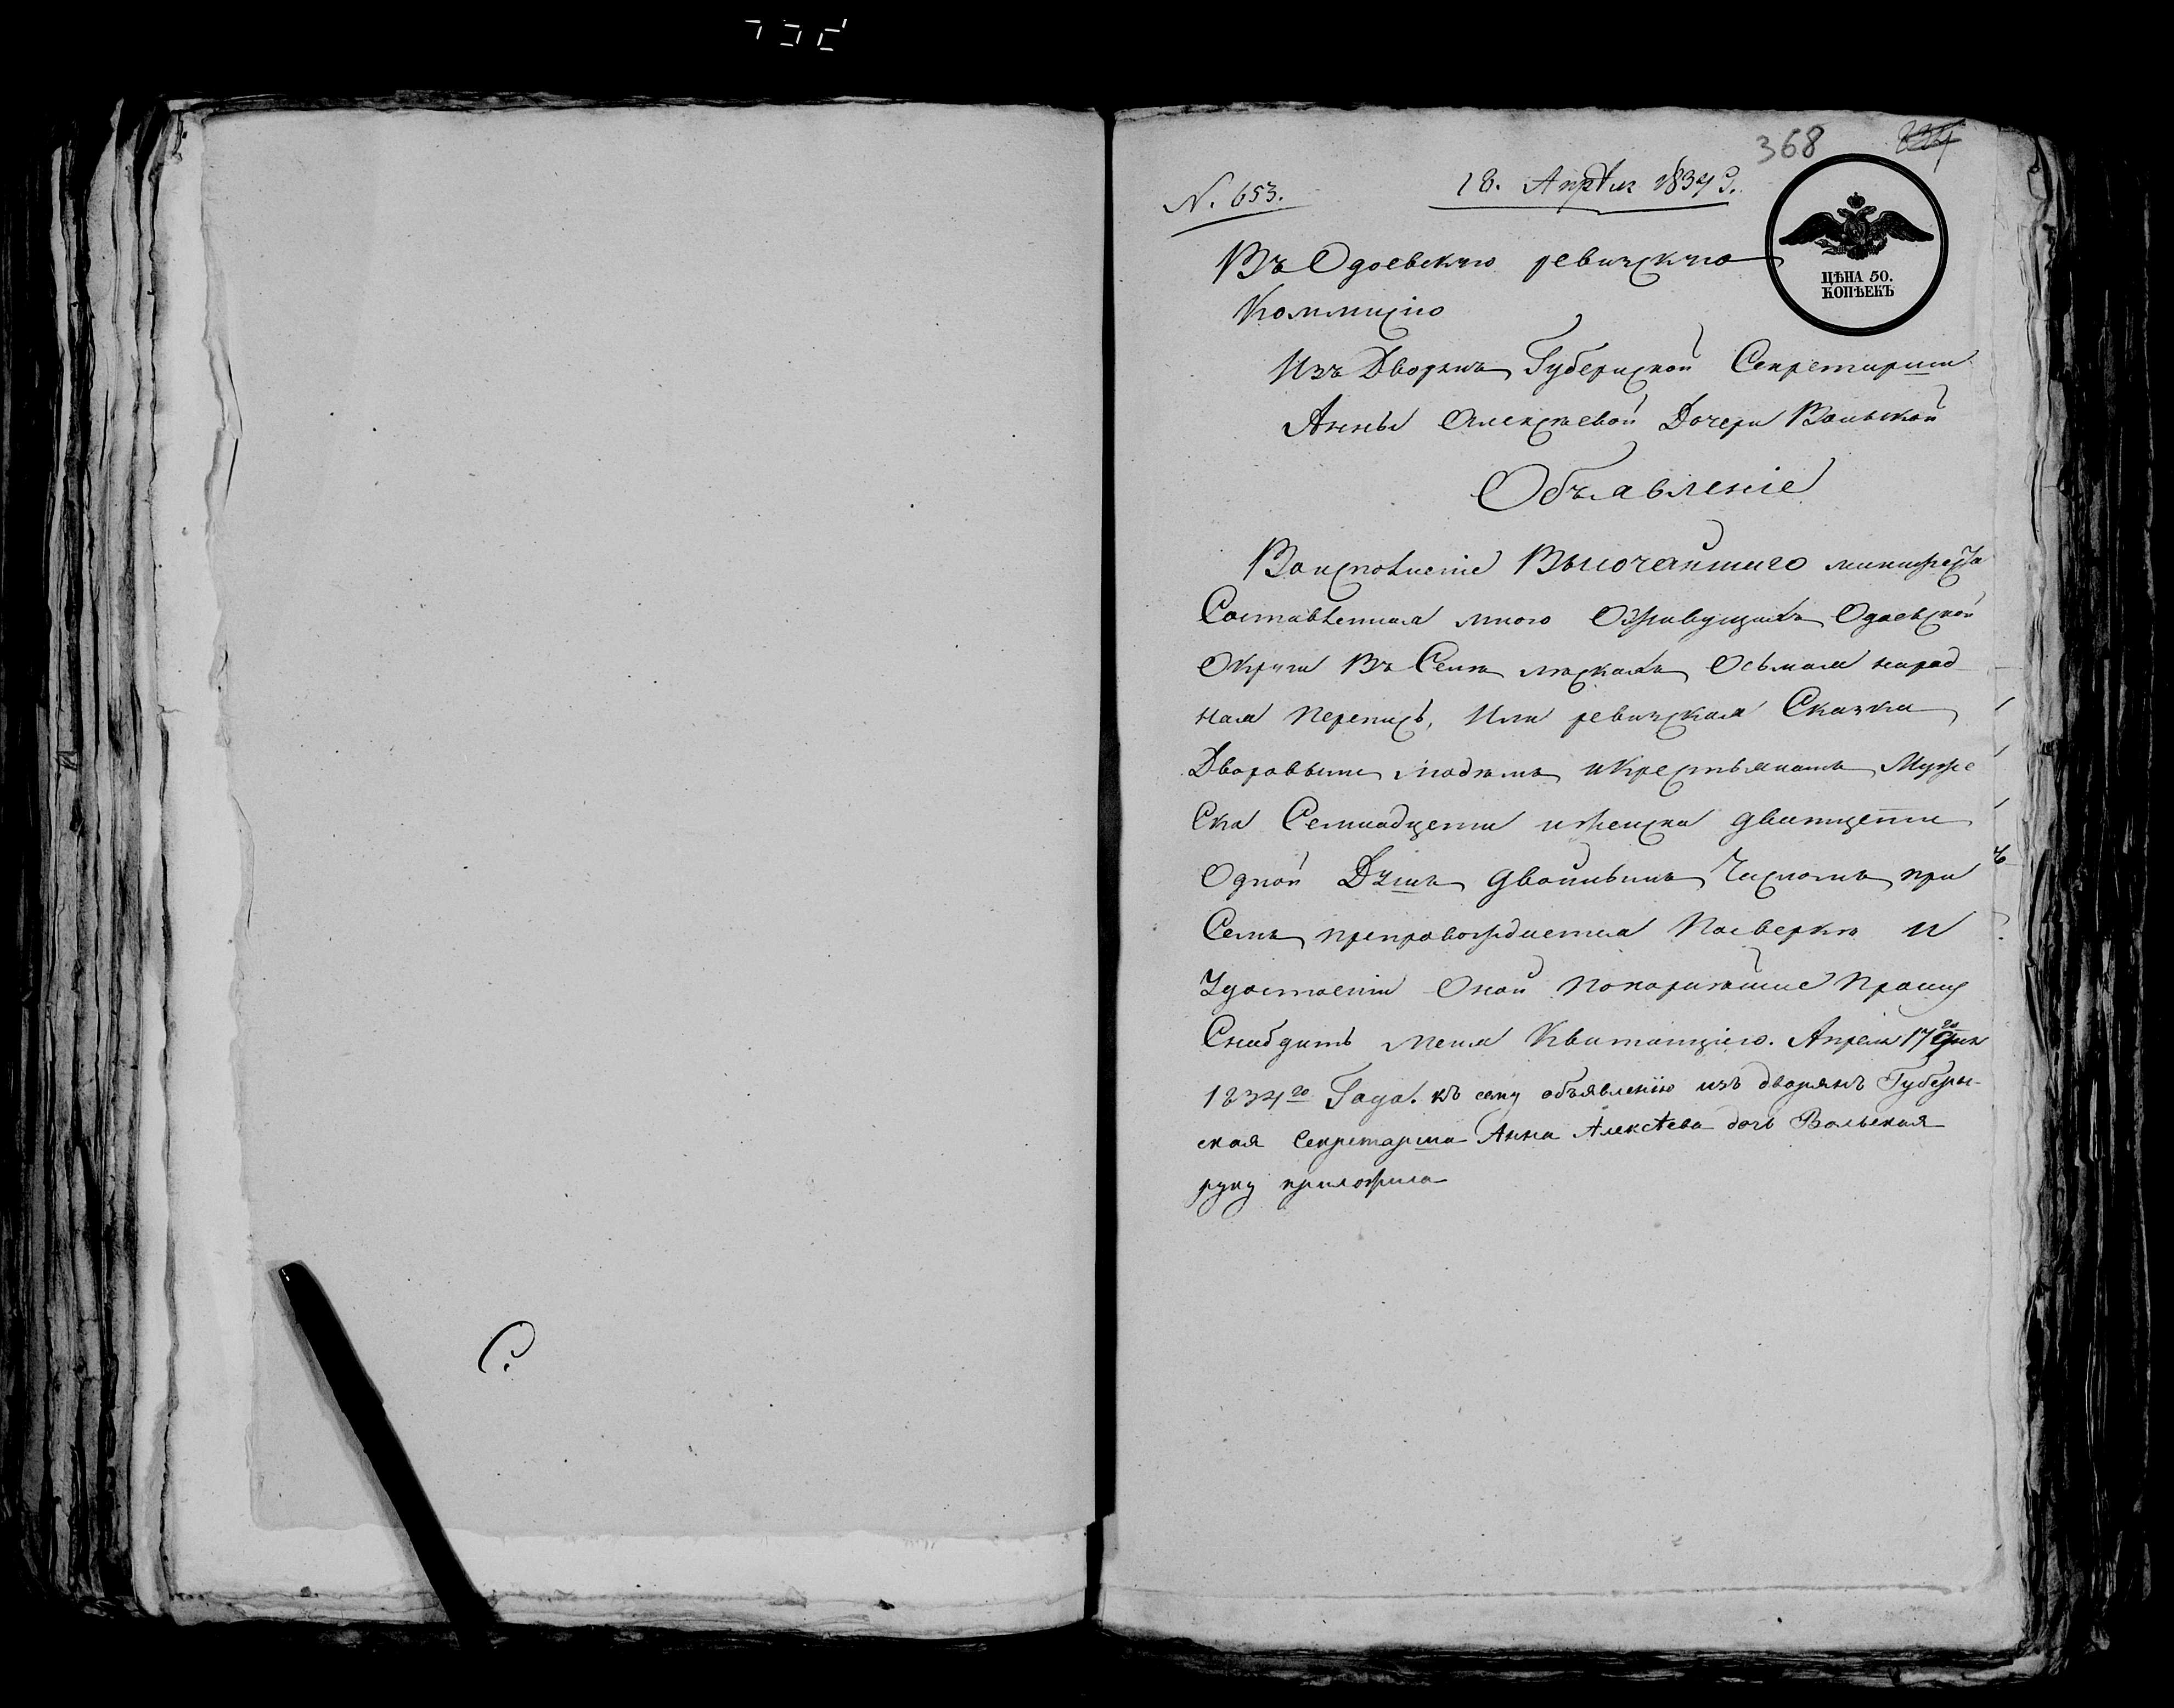 368
N. 653.
18. Апрѣля 1834 г.
ЦѢНА 50.
КОПѢЕКЪ
Въ Одоевскую ревизскую
Коммисію
Изъ Дворянъ Губернской Секретарши
Анны Алексѣевой Дочери Вольской
Объявленіе
Воисполненіе Высочайшаго манифеста
Составленная мною Оживущихъ Одоевской
Округи Въ Селѣ Осьмая народ
ная перепись, Или ревизская Сказка
Дворовымъ людямъ икрестьянамъ Муже
Ска Семнадцети иженска дватцети
Одной Душъ двойнымъ Числомъ при
Семъ препровождается Поеверки И
Удостоеніи Оной Покорнѣйше Прошу
Снабдить меня Квитанціею. Апреля 17го дня
1834го Года. къ сему объявлению изъ дворянъ Губерн-
ская секретарша Анна Алексѣева дочь Вольская
руку приложила